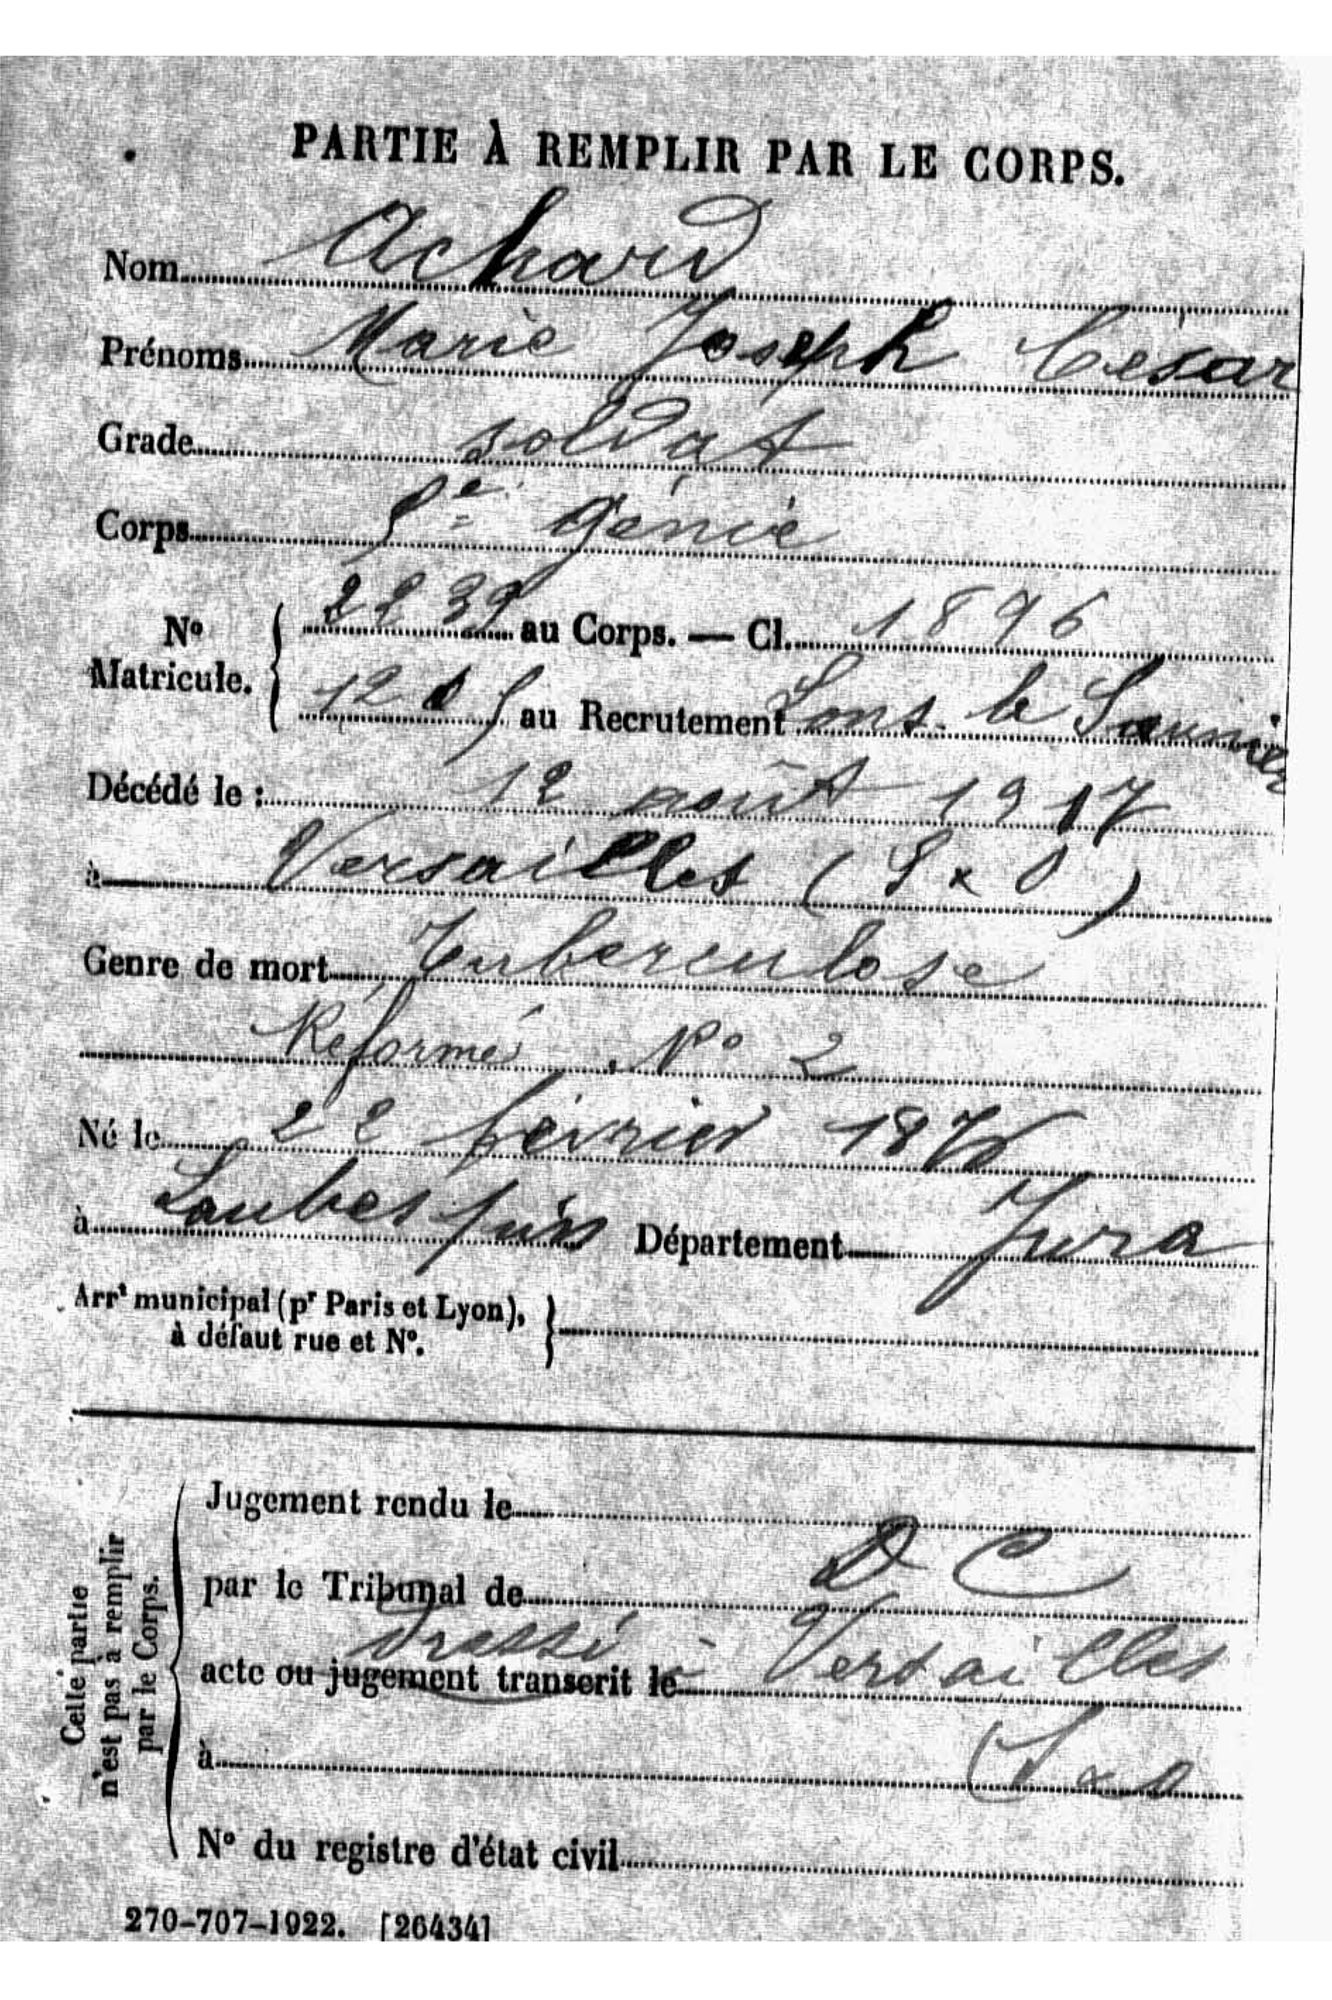 PARTIE À REMPLIR PAR LE CORPS.
Nom Achard
Prénoms Marie Joseph César
Grade soldat
Corps Génie
No Matricule. 2239 au Corps. — Cl. 1896
au Recrutement Lons-le Saunier
Décédé le : 12 août 1917
à Versailles (S & O)
Genre de mort Tuberculose
Réformé No 2
Né le 22 février 1876
à Loubespin Département Jura
Arrt municipal (pr Paris et Lyon),
à défaut rue et No.
Cette partie n'est pas à remplir par le Corps.
Jugement rendu le
par le Tribunal de D C
dressé
acte ou jugement transcrit le à Versailles
à (S & O
No du registre d'état civil
270-707-1922. [26434]